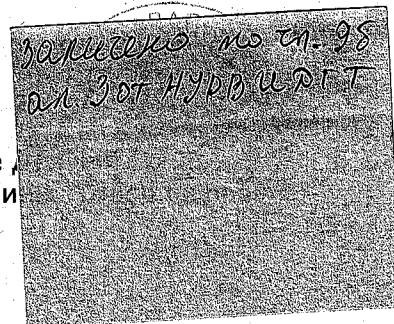 заличено по чл. 9б
ал. 3 от НУРВИДГТ
и